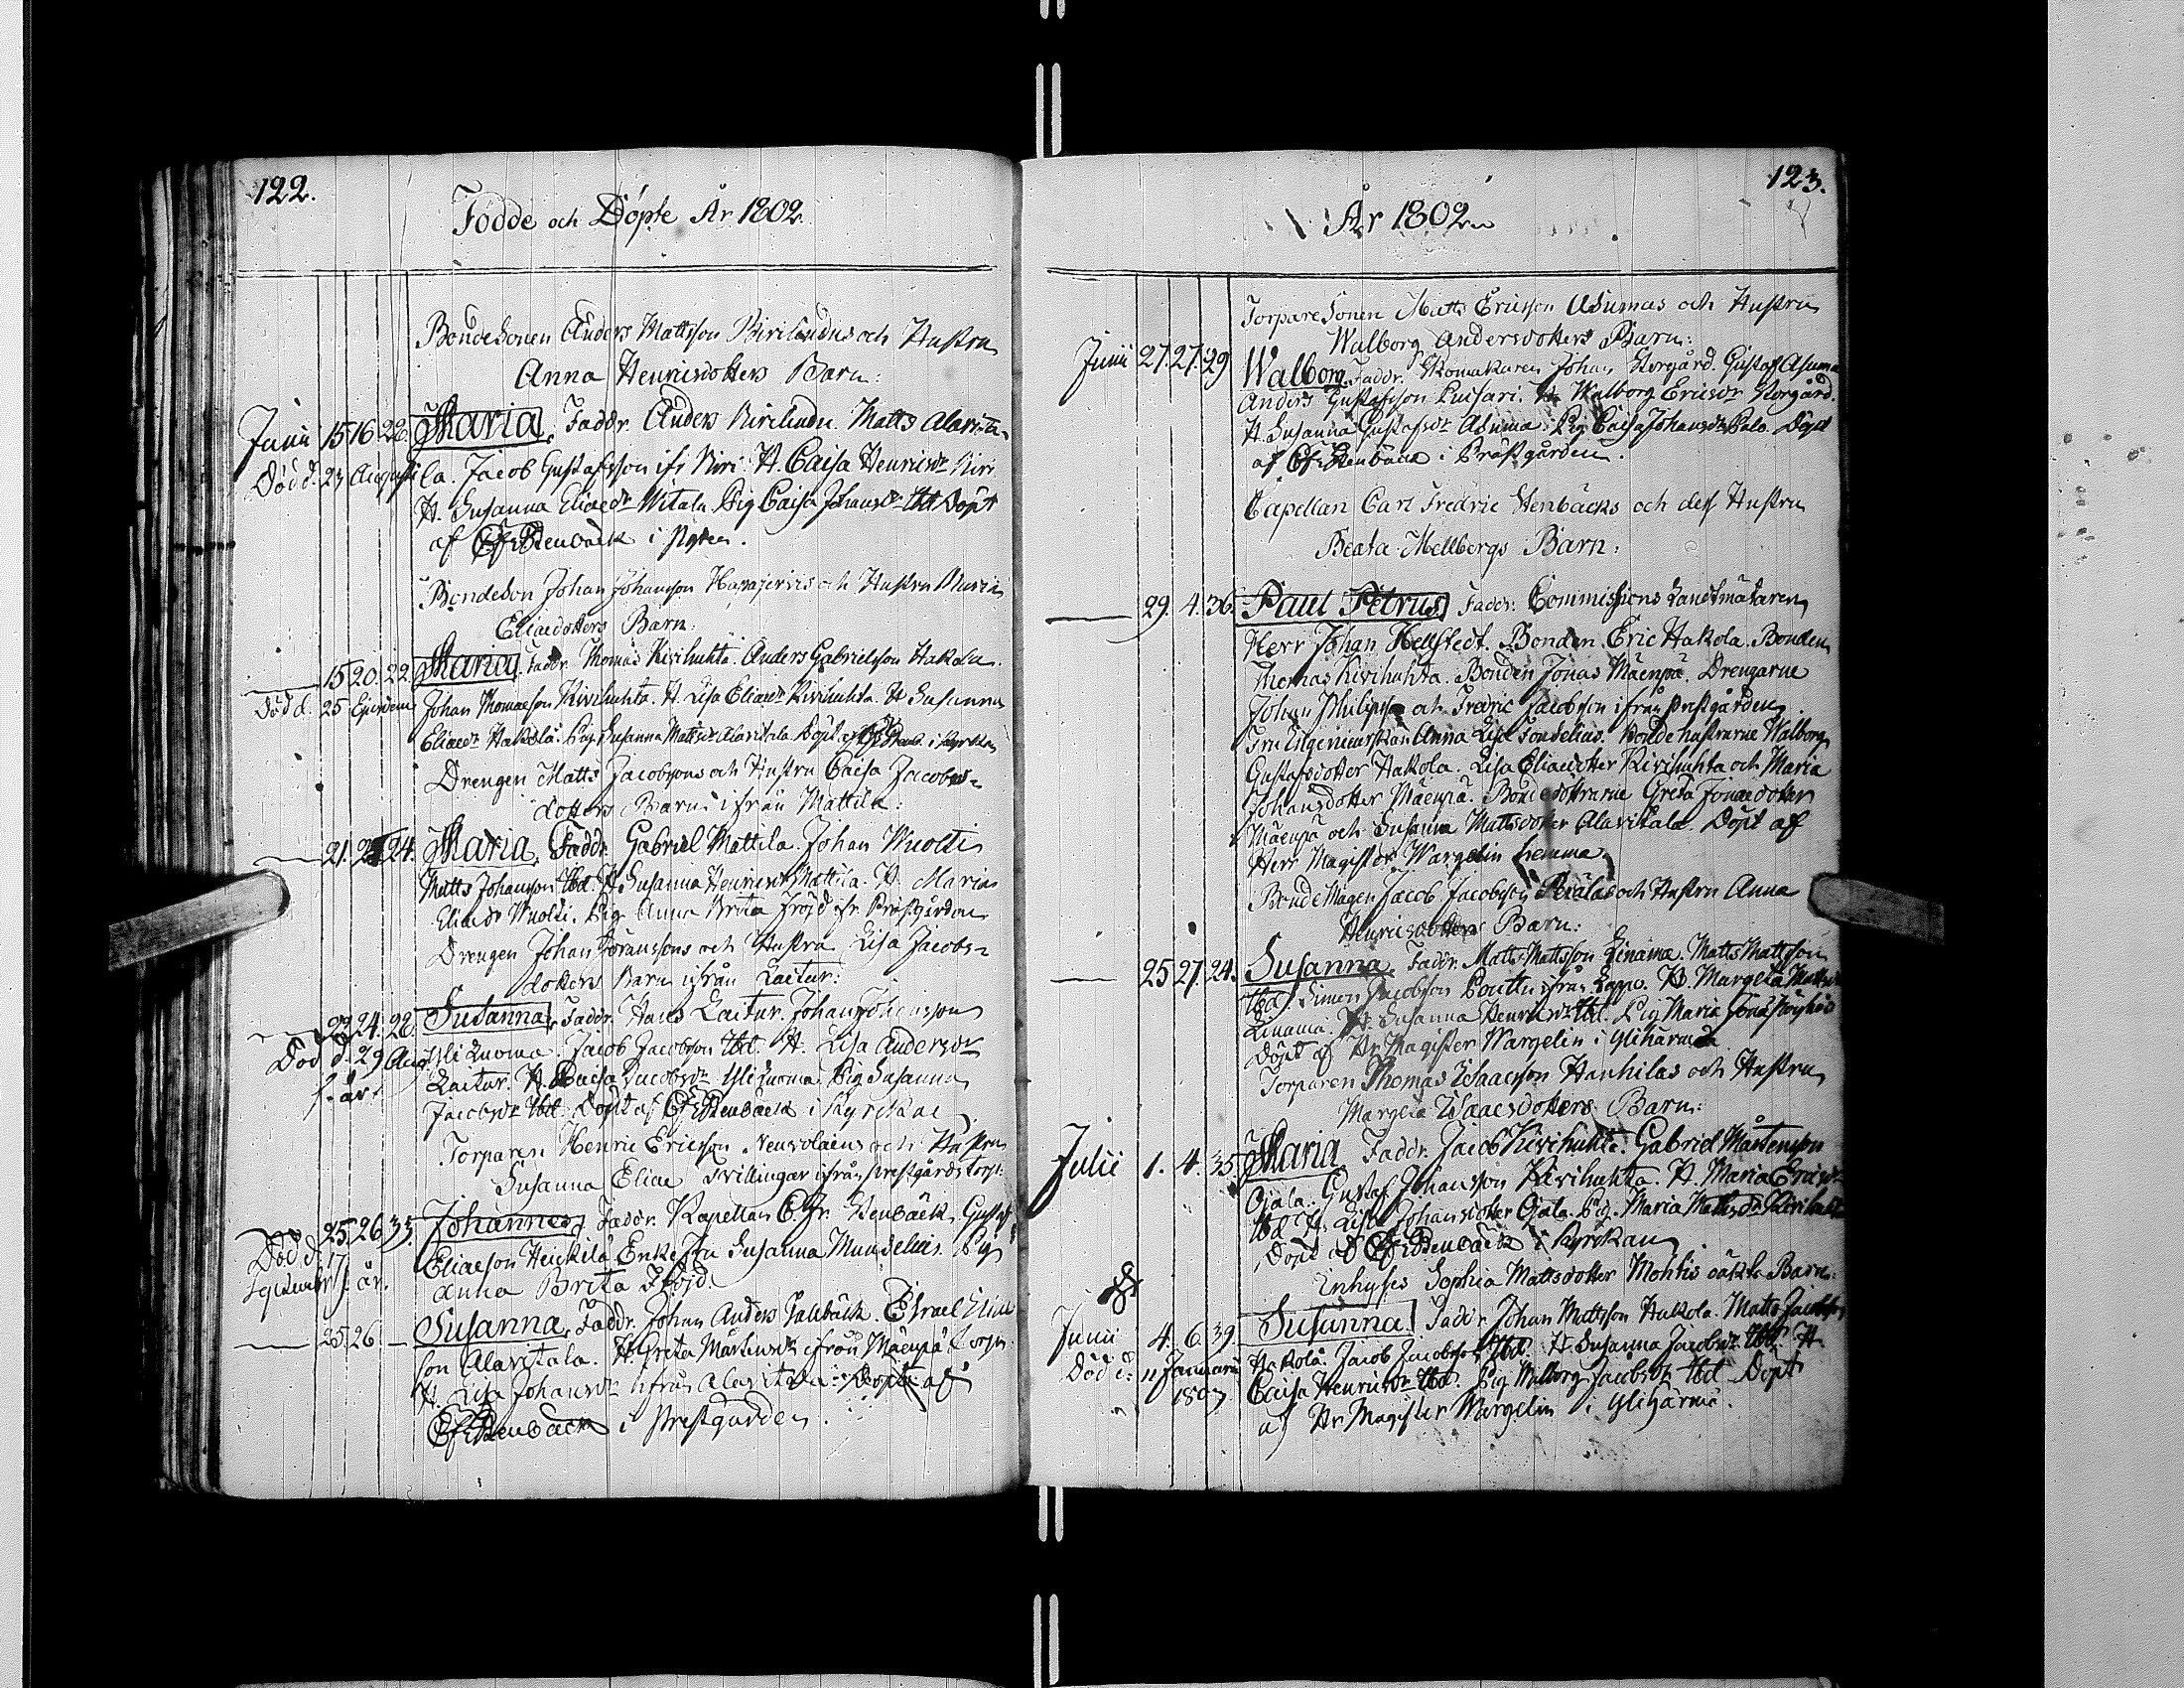 122.
Födde och Döpte År 1802.
Bondesonen Anders Mattsson Kirilundus och Hustru
Anna Henricsdotters Barn:
Junii 15 16 22. Maria, Faddr. Anders Kirilundu. Matts Alarita-
Död d. 23 Augusti la. Jacob Gustafsson ifr. Kiri. H. Caisa Henricsdr Kiri
H. Susanna Eliaedr Witala. Pig. Caisa Johansdr Ibd Döpt
af CFrStenbäck i
Bondeson Johan Johansson Haapajervis och Hustru Maria
Eliaedotters Barn:
15 20. 22. Maria, Faddr. Thomas Kivihuhta. Anders Gabrielsson Hakola.
Död d. 25 Ejusdem Johan Thomaeson Kivihuhta. H. Lisa Eliaedr Kivihuhta. H. Susanna
Eliaedr Hakola. Pig. Susanna Mattsdr Alaritala Döpt af i Kyrckan
Drengen Matts Jacobsons och Hustru Caisa Jacobs-
dotters Barn ifrån Mattila:
21. 24. Maria, Faddr. Gabriel Mattila. Johan Wuolti
Matts Johansson Ibd. H. Susanna Henricsdr Mattila. H. Maria
Eliaedr Wuolti. Pig. Anna Brita Fröjd ifr. Prästgården
Drengen Johan Göranssons och Hustru Lisa Jacobs-
dotters Barn ifrån Laitur:
22 24. 28. Susanna, Faddr. Hans Laitur. Johan Johansson
Död d. 29 Aug. Yliluoma. Jacob Jacobson Ibd. H. Lisa Andersdr
s. år. Laitur. H. Caisa Jacobsdr Yliluoma. Pig Susanna
Jacobsdr Ibd. Döpt af CFrStenbäck i Kyrckan
Torparen Henric Ericsson och Hustru
Susanna Eliae Tvillingar ifrån prestgårds torp:
25. 26 35. Johannes, Faddr. Kapellan C. Fr. Stenbäck, Gustaf
Död d. 17 Eliaeson Heickilä Enke Fru Susanna Mundelius. Pig
September s. år. Anna Brita Fröjd.
25. 26. — Susanna, Faddr. Johan Anders Tallbäck. Israel Eliae
son Alaritala. H. Greta Mårtensdr ifrån Mäenpä Torp.
H. Lisa Johansdr ifrån Alaritala: Döpte af
CFrStenbäck i Prestgården.
123.
År 1802
Torpare Sonen Matts Ericsson Asumas och Hustru
Walborg Andersdotters Barn:
Junii 27. 27. 29 Walborg. Faddr. Skomakaren Johan Storgård. Gustaf Asuma
Anders Gustafsson Luisari. H. Walborg Ericsdr Storgård.
H. Susanna Gustafsdr Asuma. Pig. Caisa Johansdr Palo. Döpt
af CFrStenbäck i Prästgården.
Capellan Carl Fredric Stenbäcks och dess Hustru
Beata Mellbergs Barn:
29. 4. 36. Paul Petrus, Faddr. Commissions Landtmätaren
Herr Johan Hellstedt. Bonden Eric Hakola. Bonden
Thomas Kivihuhta. Bonden Jonas Mäenpä. Drengarne
Johan Philipss och Fredric Jacobson ifrån prestgården.
Fru Ingenieurskan Anna Lisa Fondelius. Bondehustrurne Walborg
Gustafsdotter Hakola. Lisa Eliaedotter Kivihuhta och Maria
Johansdotter Mäenpä. Bondedöttrarne Greta Jonaedotter
Mäenpä och Susanna Mattsdotter Alaritala. Döpt af
Herr Magister Wargelin hemma
Bonde Magen Jacob Jacobson Peräläs och Hustru Anna
Henricsdotters Barn:
25 27. 24. Susanna, Faddr. Matts Mattsson Linama. Matts Mattson
Ibd. Simon Jacobson Pouttu ifrån Lappo. H. Margeta Mattsdr
Linama. H. Susanna Henricsdr Ibd. Pig Maria
Döpt af Hr Magister Wargelin i Ylihärmä
Torparen Thomas Isaacson Hanhilas och Hustru
Margeta Isaacsdotters Barn:
Julii 1. 4. 35. Maria, Faddr. Jacob Kivihuhta. Gabriel Mårtenson
Ojala. Gustaf Johansson Kivihuhta. H. Maria Ericsdr
Ibd. H. Lisa Johansdotter Ojala. Pig. Maria Mattsdr Kivihuhta
Döpt af CFrStenbäck i Kyrckan
Inhyses Sophia Mattsdotter Mohtis oäkta Barn:
Junii 4. 6. 39. Susanna, Faddr. Johan Mattsson Hakola. Matts Jacobson
Död d: 11 Januarii Hakola. Jacob Jacobson Ibd. H. Susanna Jacobsdr Ibd. H.
1803 Caisa Henricsdr Ibd. Pig Walborg Jacobsdr Ibd Döpt
af Hr Magister Wargelin i Ylihärmä.